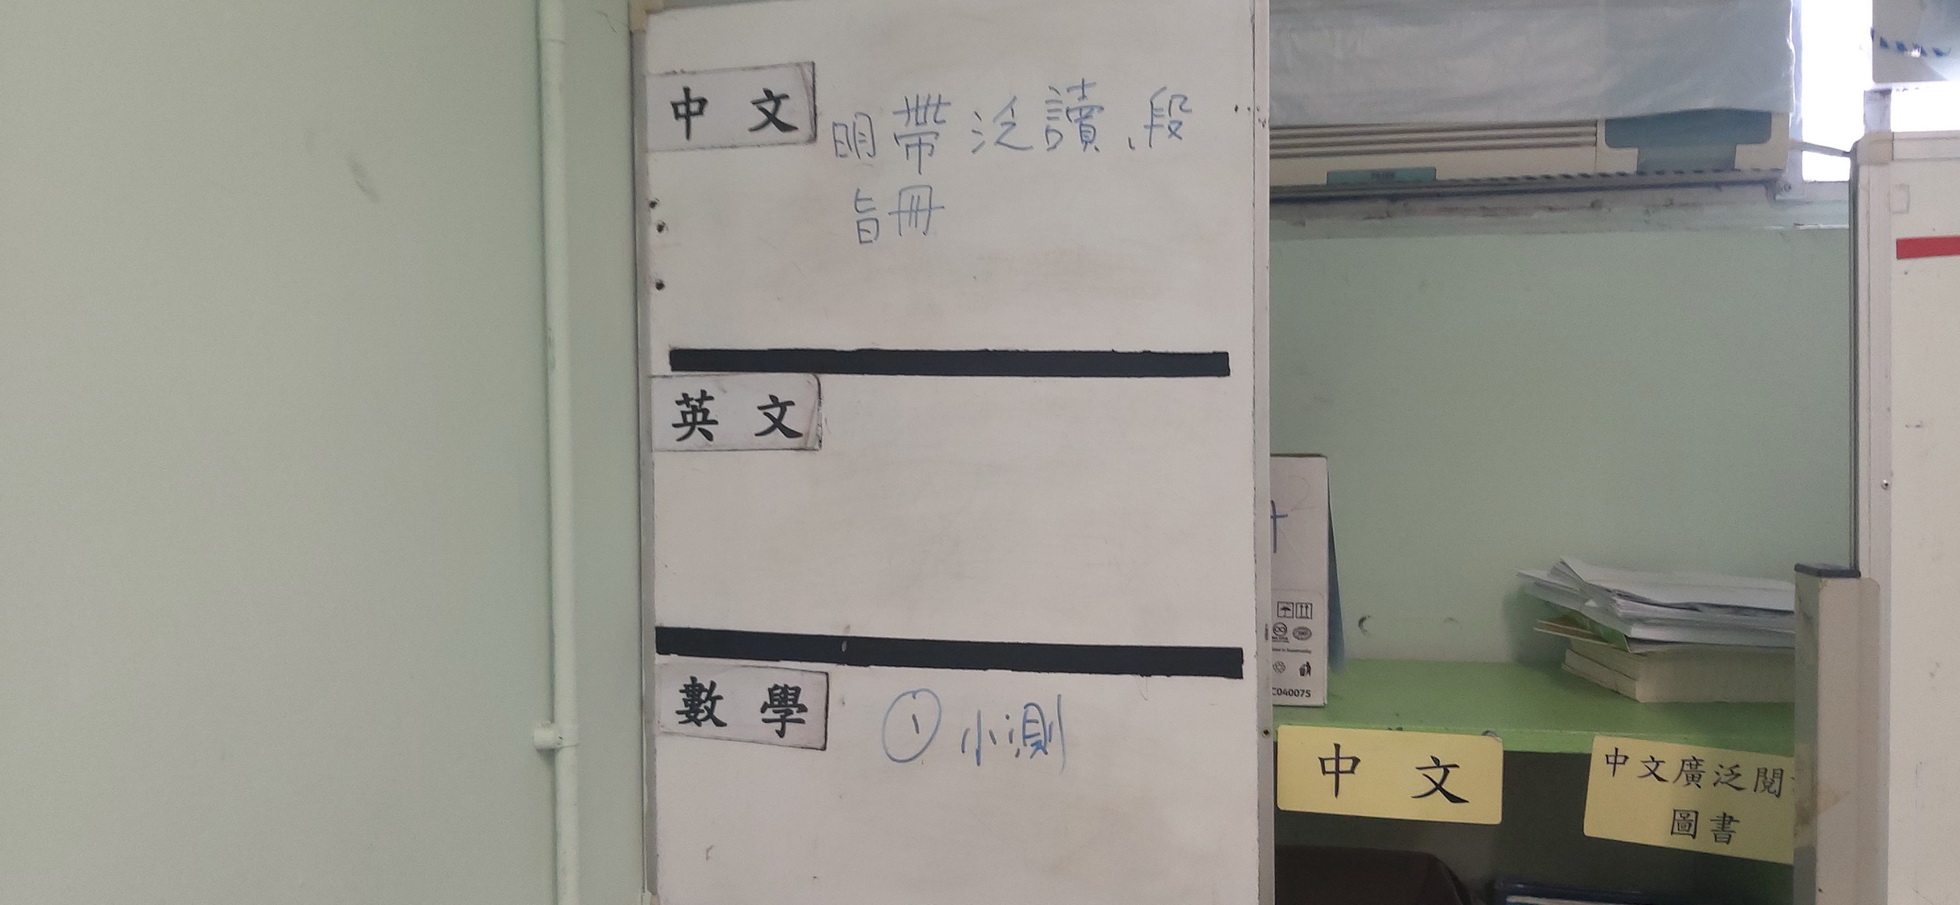 中文
明帶泛讀、段
旨冊
英文
數學
① 小測
C040075
中文
中文廣泛閱
圖書